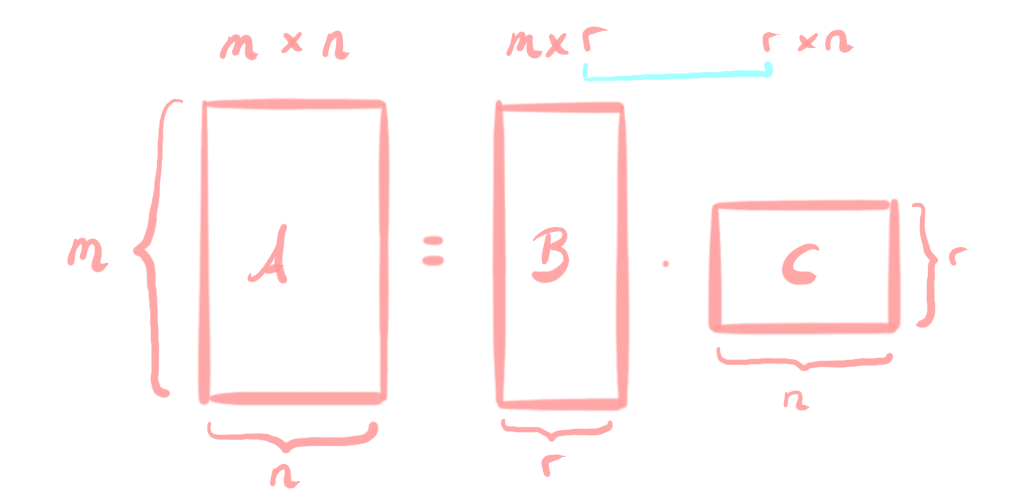 m × n m × r r × n
m A = B · C r
n r n